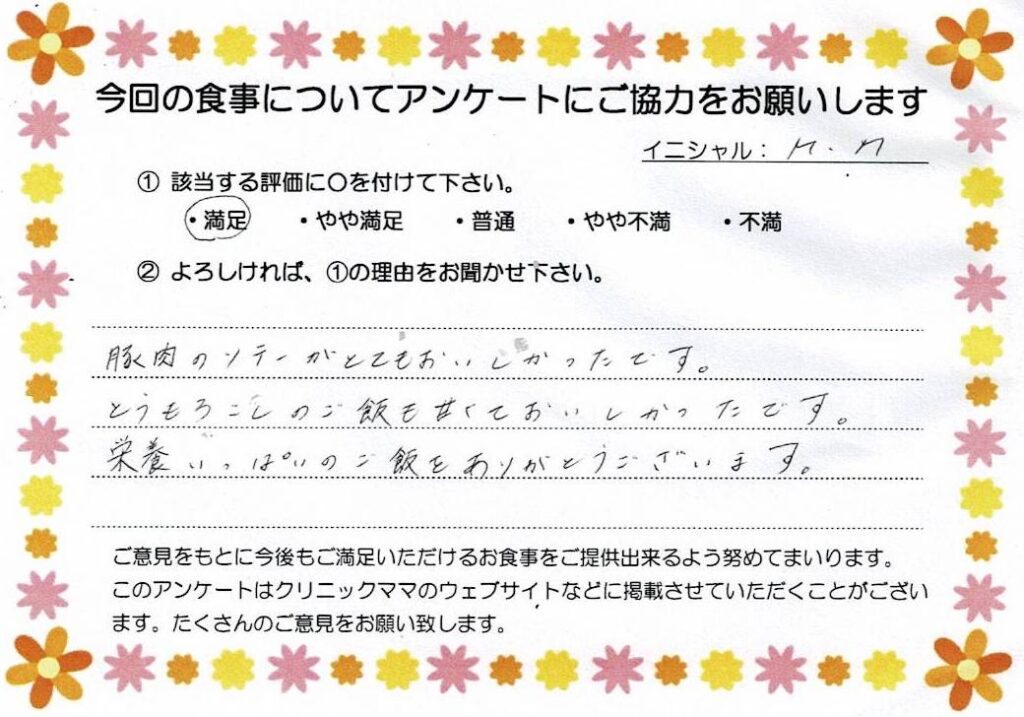 今回の食事についてアンケートにご協力をお願いします
イニシャル：
① 該当する評価に〇を付けて下さい。
・満足 ・やや満足 ・普通 ・やや不満 ・不満
② よろしければ、①の理由をお聞かせ下さい。
豚肉のソテーがとてもおいしかったです。
とうもろこしのご飯も甘くておいしかったです。
栄養いっぱいのご飯をありがとうございます。
ご意見をもとに今後もご満足いただけるお食事をご提供出来るよう努めてまいります。
このアンケートはクリニックママのウェブサイトなどに掲載させていただくことがござい
ます。たくさんのご意見をお願い致します。